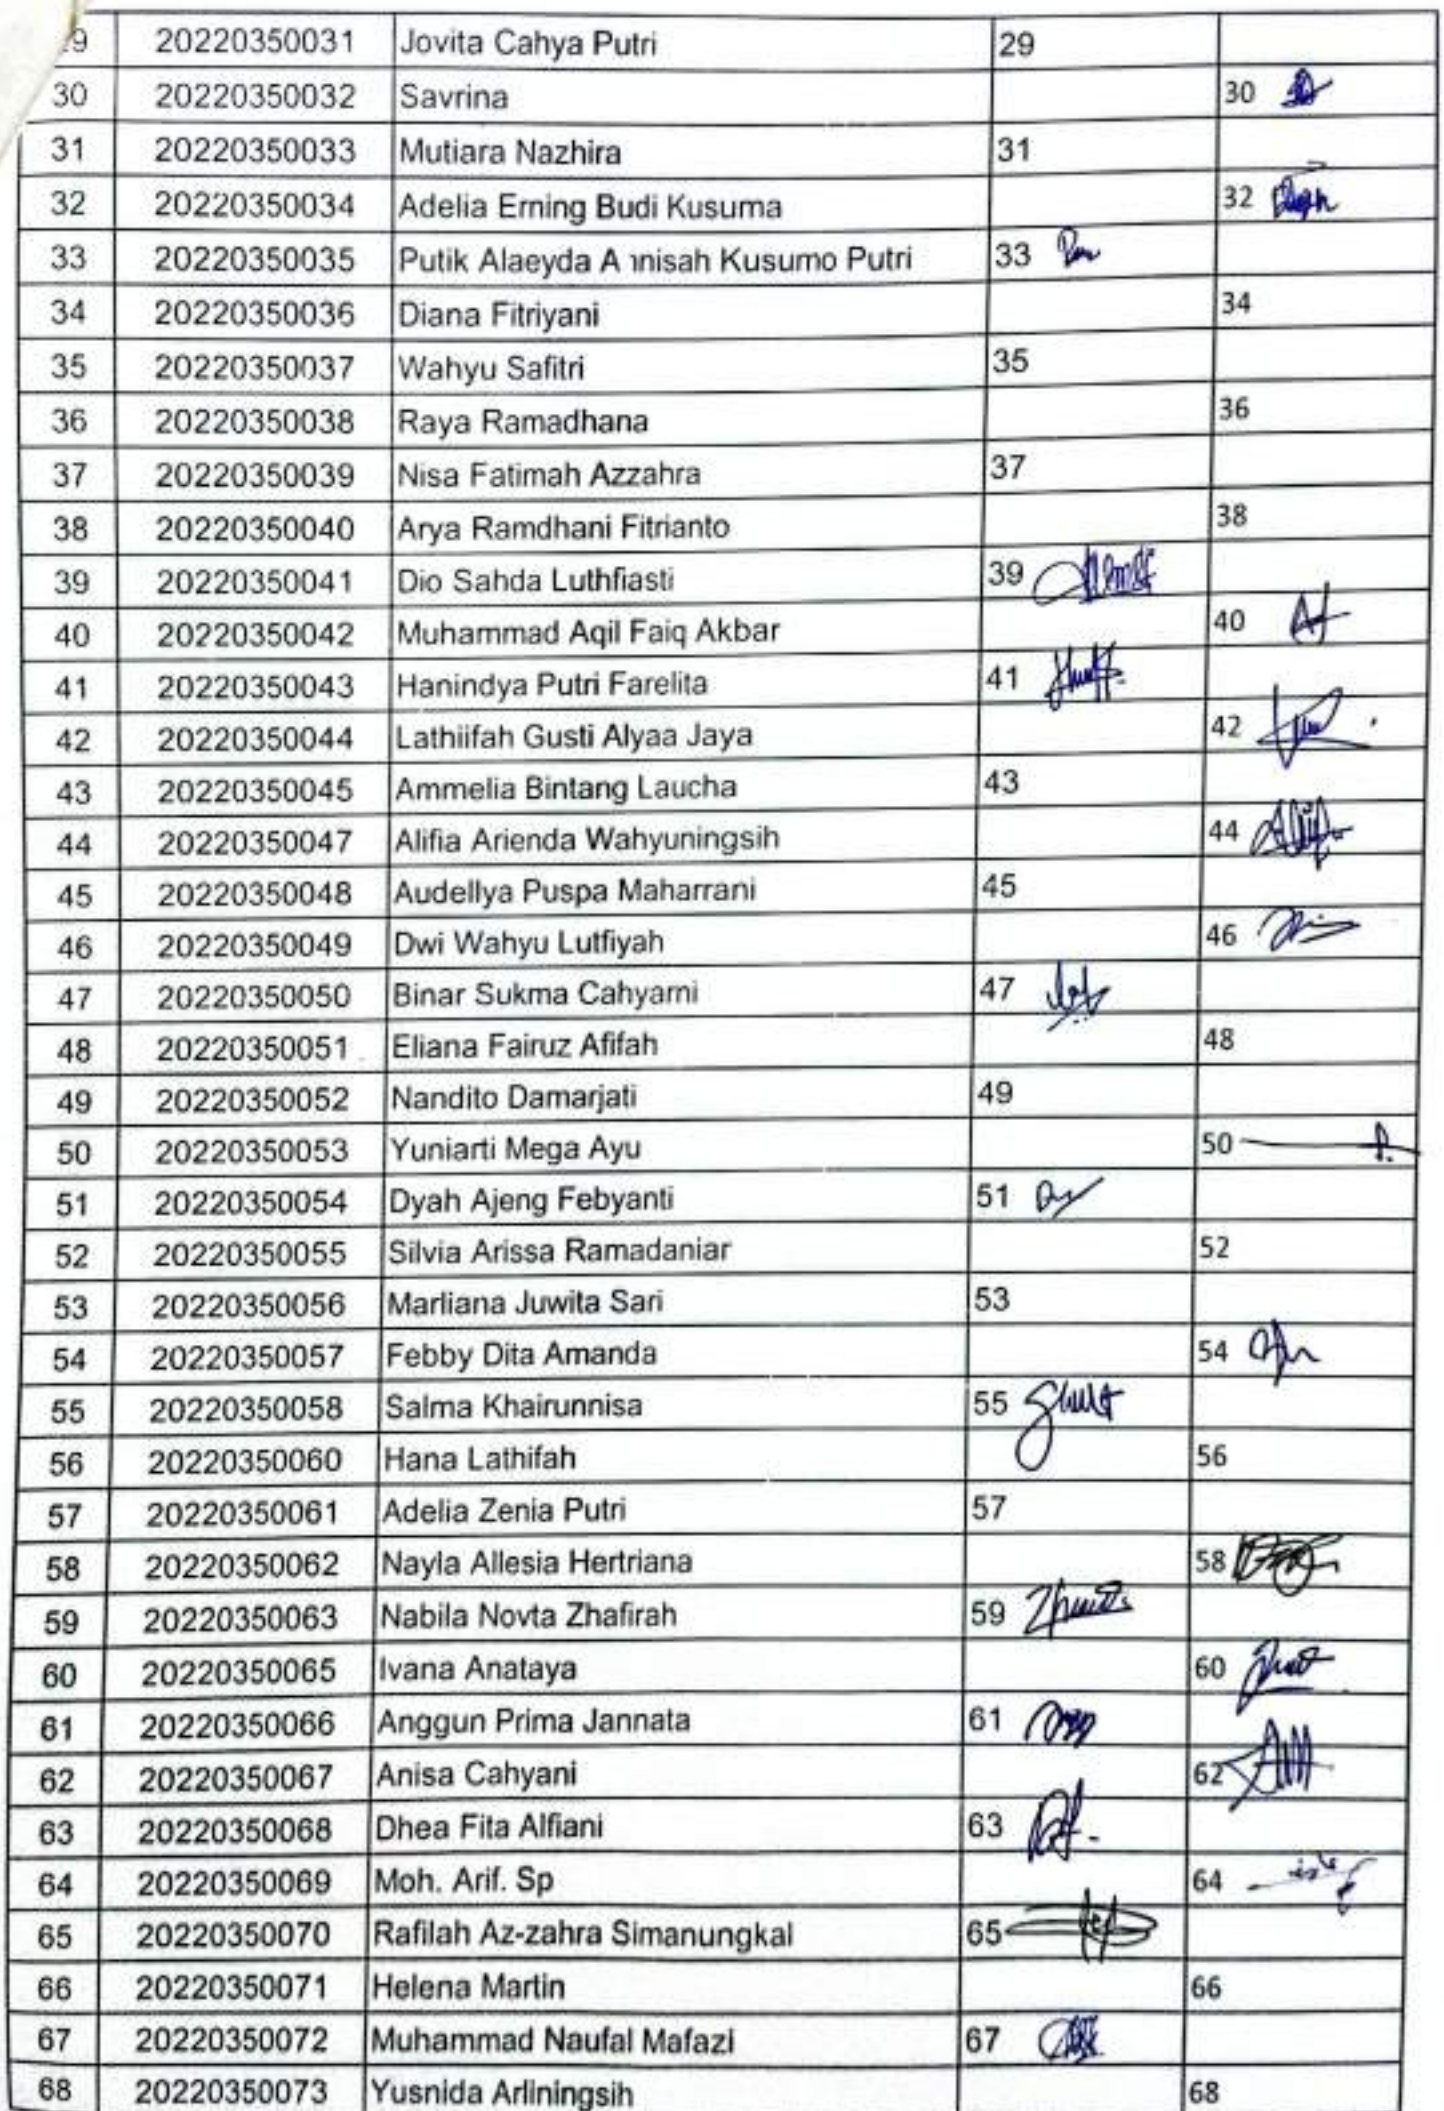 9 20220350031 Jovita Cahya Putri 29
30 20220350032 Savrina 30
31 20220350033 Mutiara Nazhira 31
32 20220350034 Adelia Erning Budi Kusuma 32
33 20220350035 Putik Alaeyda A nnisah Kusumo Putri 33
34 20220350036 Diana Fitriyani 34
35 20220350037 Wahyu Safitri 35
36 20220350038 Raya Ramadhana 36
37 20220350039 Nisa Fatimah Azzahra 37
38 20220350040 Arya Ramdhani Fitrianto 38
39 20220350041 Dio Sahda Luthfiasti 39
40 20220350042 Muhammad Aqil Faiq Akbar 40
41 20220350043 Hanindya Putri Farelita 41
42 20220350044 Lathiifah Gusti Alyaa Jaya 42
43 20220350045 Ammelia Bintang Laucha 43
44 20220350047 Alifia Arienda Wahyuningsih 44
45 20220350048 Audellya Puspa Maharrani 45
46 20220350049 Dwi Wahyu Lutfiyah 46
47 20220350050 Binar Sukma Cahyarni 47
48 20220350051 Eliana Fairuz Afifah 48
49 20220350052 Nandito Damarjati 49
50 20220350053 Yuniarti Mega Ayu 50
51 20220350054 Dyah Ajeng Febyanti 51
52 20220350055 Silvia Arissa Ramadaniar 52
53 20220350056 Marliana Juwita Sari 53
54 20220350057 Febby Dita Amanda 54
55 20220350058 Salma Khairunnisa 55
56 20220350060 Hana Lathifah 56
57 20220350061 Adelia Zenia Putri 57
58 20220350062 Nayla Allesia Hertriana 58
59 20220350063 Nabila Novta Zhafirah 59
60 20220350065 Ivana Anataya 60
61 20220350066 Anggun Prima Jannata 61
62 20220350067 Anisa Cahyani 62
63 20220350068 Dhea Fita Alfiani 63
64 20220350069 Moh. Arif. Sp 64
65 20220350070 Rafilah Az-zahra Simanungkal 65
66 20220350071 Helena Martin 66
67 20220350072 Muhammad Naufal Mafazi 67
68 20220350073 Yusnida Arliningsih 68